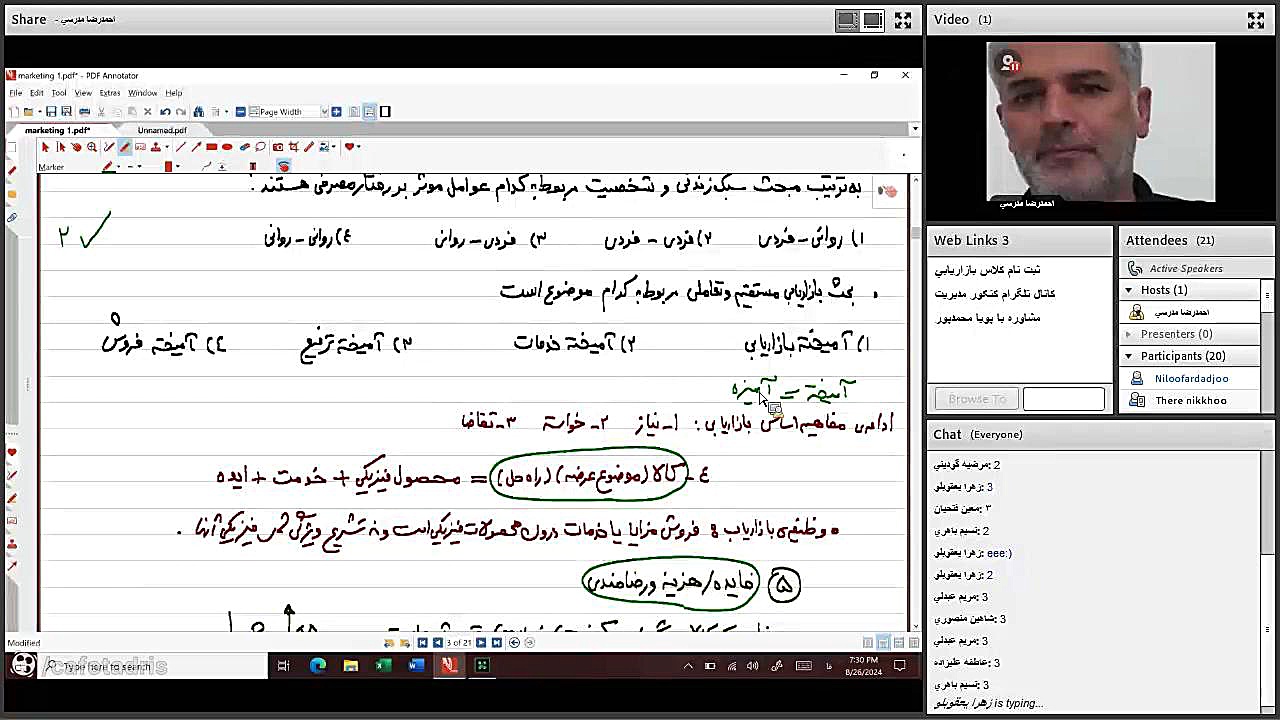 Share احمدرضا مدرسي -
marketing 1.pdf* - PDF Annotator
File Edit Tool View Extras Window Help
Page Width
marketing 1.pdf* Unnamed.pdf
Marker
به ترتیب مبحث سبک زندگی و شخصیت مربوط به کدام عوامل موثر بر رفتار مصرفی هستند :
۱) روانی - فردی ۲) فردی - فردی ۳) فردی - روانی ٤) روانی - روانی
۲ ✓
. بحث بازاریابی مستقیم و تعاملی مربوط به کدام موضوع است
۱) آمیخته بازاریابی ۲) آمیخته خدمات ۳) آمیخته ترفیع ٤) آمیخته فروش
آمیخته = آمیزه
ادامه‌ی مفاهیم اساسی بازاریابی : ۱- نیاز ۲- خواسته ۳- تقاضا
٤- کالا (موضوع عرضه) (راه حل) = محصول فیزیکی + خدمت + ایده
• وظیفه‌ی بازاریاب : فروش مزایا یا خدمات درون محصولات فیزیکی است و نه تشریح ویژگی های فیزیکی آنها .
۵ فایده / هزینه و رضامندی
Modified 3 of 21
Type here to search
@cafetadris
7:30 PM
8/26/2024
Video (1)
احمدرضا مدرسي
Web Links 3
ثبت نام کلاس بازاريابي
کانال تلگرام کنکور مديريت
مشاوره با پويا محمدپور
Browse To
Attendees (21)
Active Speakers
Hosts (1)
احمدرضا مدرسي
Presenters (0)
Participants (20)
Niloofardadjoo
There nikkhoo
Chat (Everyone)
مرضيه گوديني: 2
زهرا يعقوبلو: 3
معين فتحيان: ۳
نسيم باهري: 2
زهرا يعقوبلو: eee:)
زهرا يعقوبلو: 2
مريم عبدلي: 3
شاهين منصوري: 3
مريم عبدلي: 3
عاطفه عليزاده: 3
نسيم باهري: 3
زهرا يعقوبلو is typing...